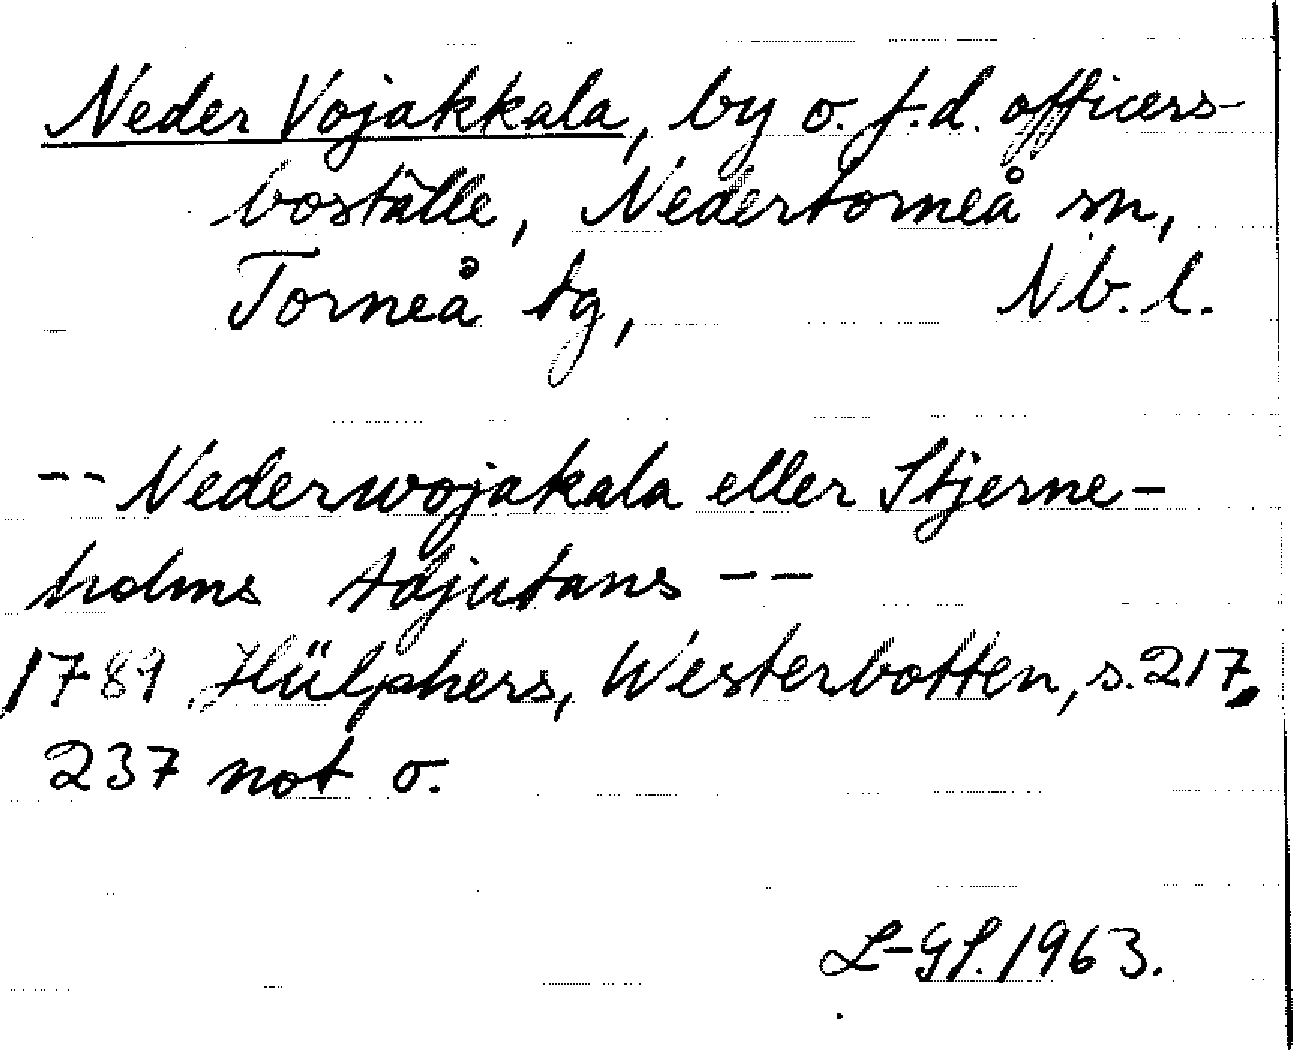 Neder Vojakkala, by o. f.d. officers-
boställe, Nedertorneå sn,
Torneå tg, Nb. l.
-- Nederwojakala eller Stjerne-
holms Adjutans --
1789 Hülphers, Westerbotten, s. 217,
237 not o.
L-GL. 1963.